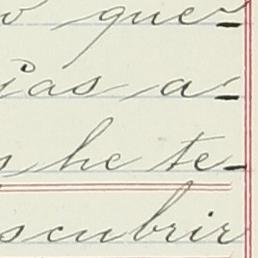 que-
as a-
he te-
scubrir